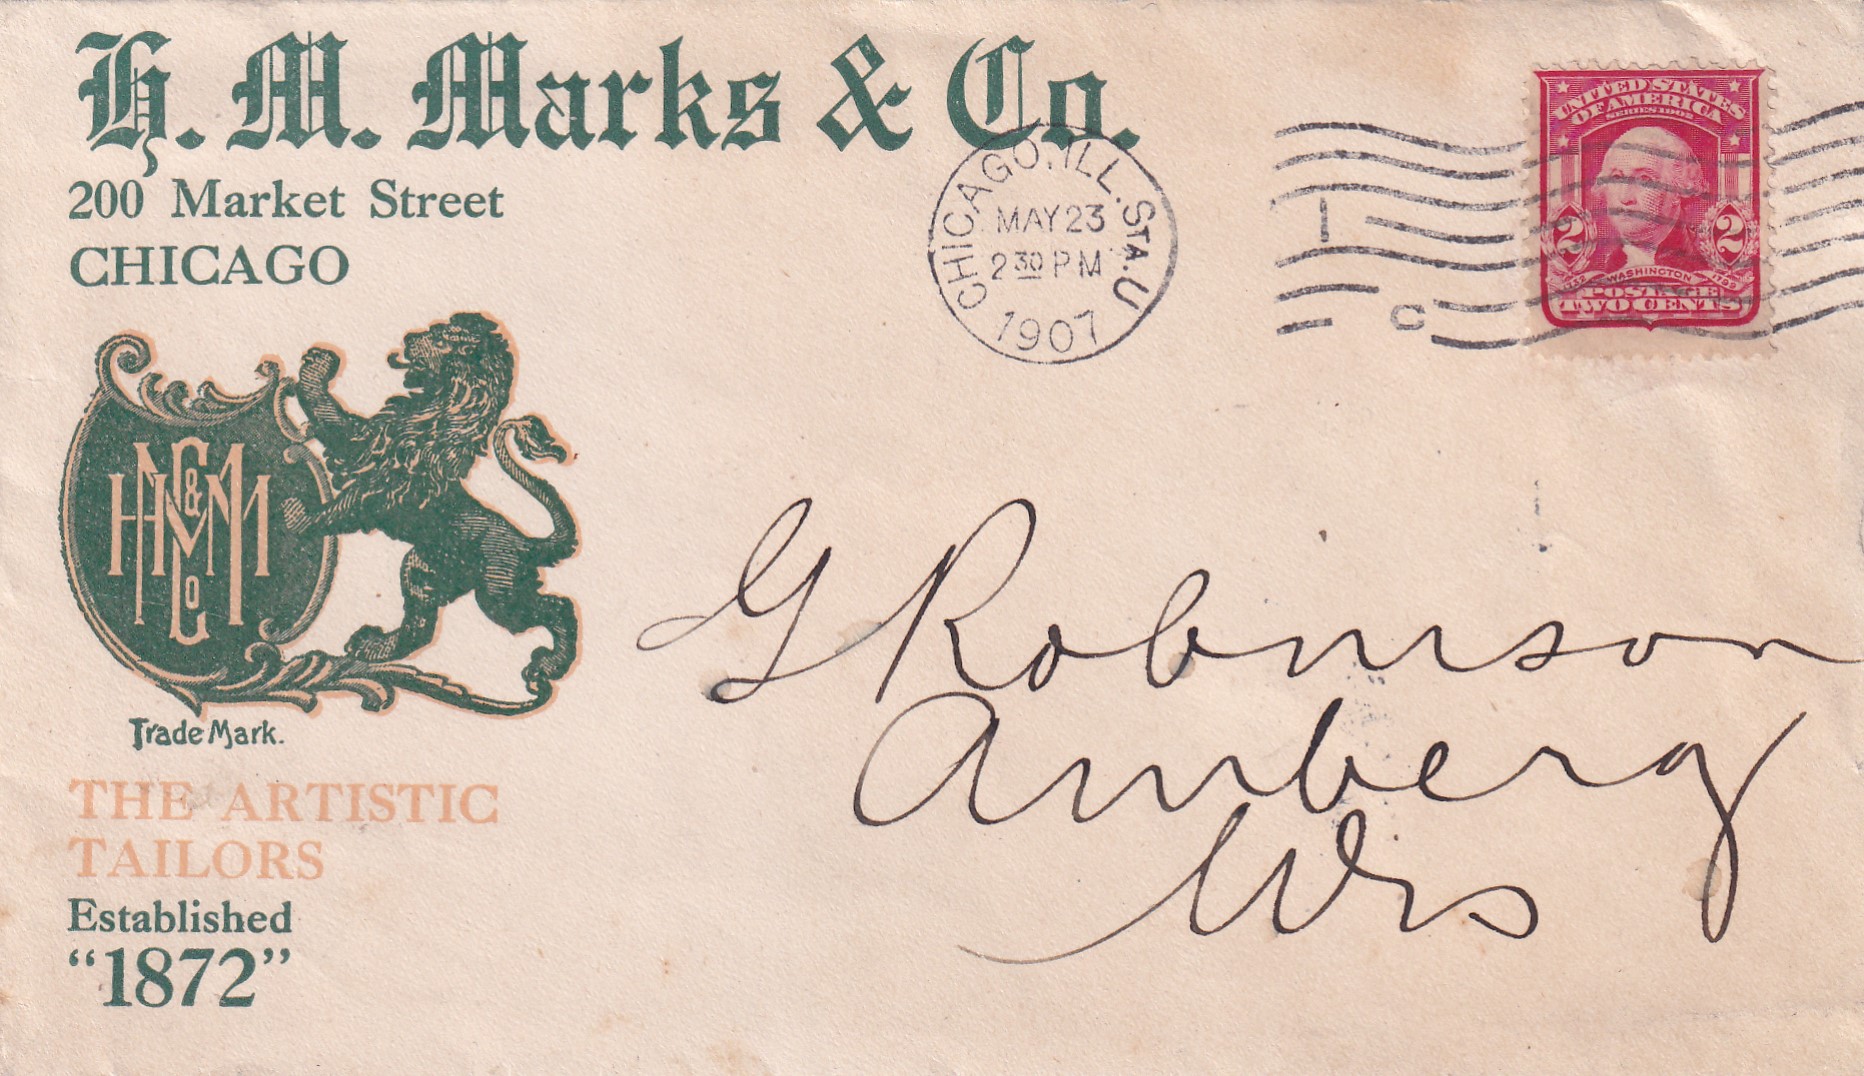 H. M. Marks & Co.
200 Market Street
CHICAGO
HMM & Co
Trade Mark.
THE ARTISTIC
TAILORS
Established
"1872"
CHICAGO, ILL. STA. U
MAY 23
2 30 PM
1907
1
C
UNITED STATES
OF AMERICA
SERIES 1902
2 2
1732 WASHINGTON 1799
POSTAGE
TWO CENTS
G Robinson
Amberg
Wis